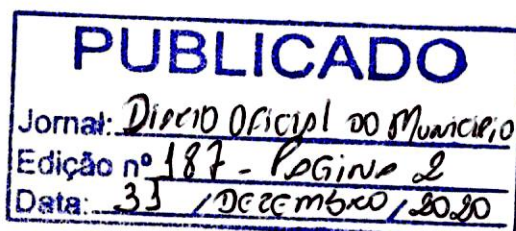 PUBLICADO
Jornal: Diário Oficial do Município
Edição nº 187 - Página 2
Data: 31 / Dezembro / 2020